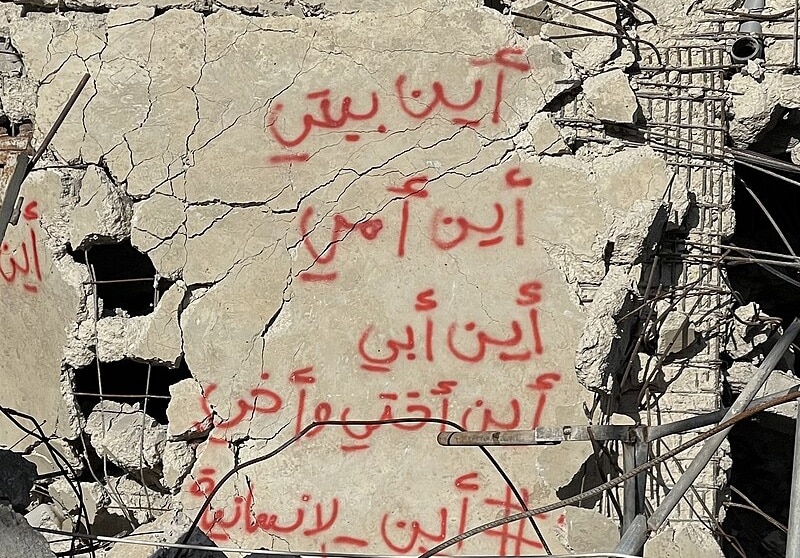 أين بيتي
أين أمي
أين أبي
أين أختي وأخي
#أين_الإنسانية
أين